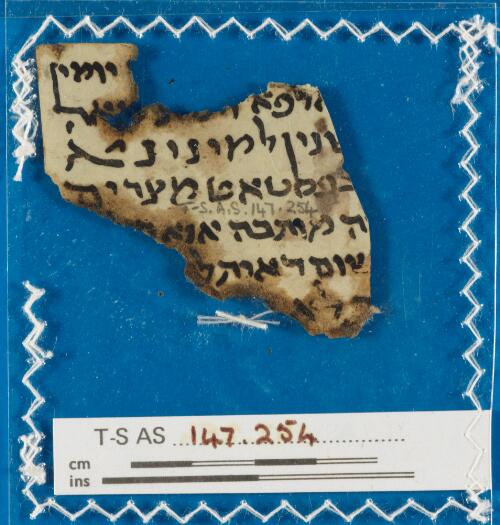 יומין
אלפא
שנין למינינא
בפסטאט מצרים
T-S. A.S. 147.254
ה מותבה
שום דאית
T-S AS 147.254
cm
ins